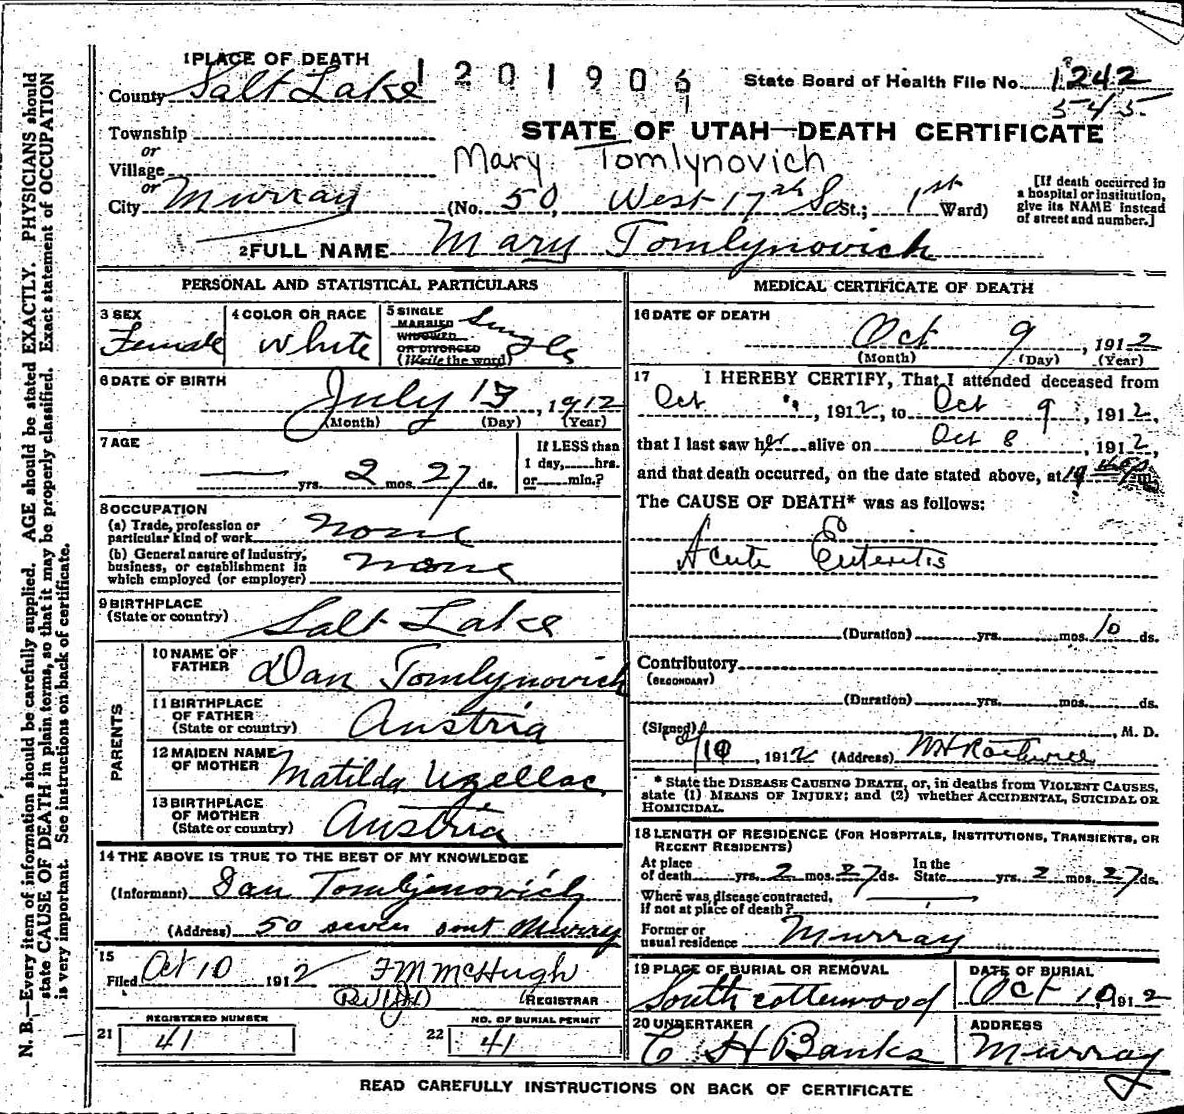 1 PLACE OF DEATH
1201906
State Board of Health File No. 1242
545.
County Salt Lake
Township
or
Village
or
City Murray
STATE OF UTAH—DEATH CERTIFICATE
Mary Tomlynovich
(No. 50, West 17th So St.; 1st Ward)
[If death occurred in
a hospital or institution,
give its NAME instead
of street and number.]
2 FULL NAME Mary Tomlynovich
PERSONAL AND STATISTICAL PARTICULARS
3 SEX
Female
4 COLOR OR RACE
White
5 SINGLE
MARRIED
WIDOWED
OR DIVORCED
(Write the word)
Single
6 DATE OF BIRTH
July 13, 1912
(Month) (Day) (Year)
7 AGE
— yrs. 2 mos. 27 ds.
If LESS than
1 day, hrs.
or min.?
8 OCCUPATION
(a) Trade, profession or
particular kind of work None
(b) General nature of Industry,
business, or establishment in
which employed (or employer) None
9 BIRTHPLACE
(State or country) Salt Lake
PARENTS
10 NAME OF
FATHER Dan Tomlynovich
11 BIRTHPLACE
OF FATHER
(State or country) Austria
12 MAIDEN NAME
OF MOTHER Matilda Uzellac
13 BIRTHPLACE
OF MOTHER
(State or country) Austria
14 THE ABOVE IS TRUE TO THE BEST OF MY KNOWLEDGE
(Informant) Dan Tomljenovich
(Address) 50 seven sout Murry
15
Filed Oct 10 1912 F M McHugh
REGISTRAR
REGISTERED NUMBER
21 41
NO. OF BURIAL PERMIT
22 41
MEDICAL CERTIFICATE OF DEATH
16 DATE OF DEATH
Oct 9, 1912
(Month) (Day) (Year)
17 I HEREBY CERTIFY, That I attended deceased from
Oct , 1912, to Oct 9, 1912,
that I last saw her alive on Oct 8 1912,
and that death occurred, on the date stated above, at m.
The CAUSE OF DEATH* was as follows:
Acute Enteritis
(Duration) yrs. mos. 10 ds.
Contributory
(SECONDARY)
(Duration) yrs. mos. ds.
(Signed) , M. D.
/10, 1912 (Address) W H Rothwell
* State the DISEASE CAUSING DEATH, or, in deaths from VIOLENT CAUSES,
state (1) MEANS OF INJURY; and (2) whether ACCIDENTAL, SUICIDAL OR
HOMICIDAL.
18 LENGTH OF RESIDENCE (FOR HOSPITALS, INSTITUTIONS, TRANSIENTS, OR
RECENT RESIDENTS)
At place
of death yrs. 2 mos. 27 ds.
In the
State yrs. 2 mos. 27 ds.
Where was disease contracted,
if not at place of death?
Former or
usual residence Murray
19 PLACE OF BURIAL OR REMOVAL
South cottenwood
DATE OF BURIAL
Oct 10, 1912
20 UNDERTAKER
C H Banks
ADDRESS
Murray
READ CAREFULLY INSTRUCTIONS ON BACK OF CERTIFICATE
N. B.—Every item of information should be carefully supplied. AGE should be stated EXACTLY. PHYSICIANS should
state CAUSE OF DEATH in plain terms, so that it may be properly classified. Exact statement of OCCUPATION
is very important. See instructions on back of certificate.